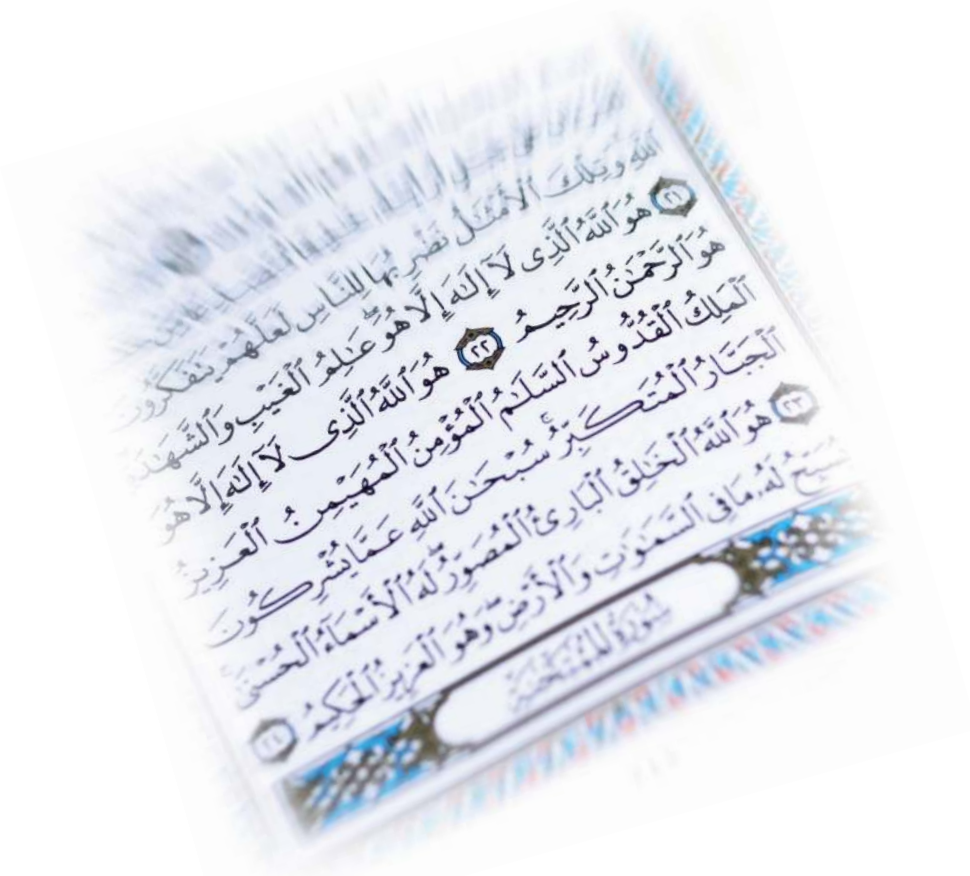 الله وَتِلْكَ ٱلْأَمْثَـٰلُ نَضْرِبُهَا لِلنَّاسِ لَعَلَّهُمْ يَتَفَكَّرُونَ
٢١ هُوَ ٱللَّهُ ٱلَّذِى لَآ إِلَـٰهَ إِلَّا هُوَ ۖ عَـٰلِمُ ٱلْغَيْبِ وَٱلشَّهَـٰدَةِ
هُوَ ٱلرَّحْمَـٰنُ ٱلرَّحِيمُ ٢٢ هُوَ ٱللَّهُ ٱلَّذِى لَآ إِلَـٰهَ إِلَّا هُوَ
ٱلْمَلِكُ ٱلْقُدُّوسُ ٱلسَّلَـٰمُ ٱلْمُؤْمِنُ ٱلْمُهَيْمِنُ ٱلْعَزِيزُ
ٱلْجَبَّارُ ٱلْمُتَكَبِّرُ ۚ سُبْحَـٰنَ ٱللَّهِ عَمَّا يُشْرِكُونَ
٢٣ هُوَ ٱللَّهُ ٱلْخَـٰلِقُ ٱلْبَارِئُ ٱلْمُصَوِّرُ ۖ لَهُ ٱلْأَسْمَآءُ ٱلْحُسْنَىٰ ۚ
يُسَبِّحُ لَهُۥ مَا فِى ٱلسَّمَـٰوَٰتِ وَٱلْأَرْضِ ۖ وَهُوَ ٱلْعَزِيزُ ٱلْحَكِيمُ ٢٤
سُورَةُ المُمْتَحَنَةِ